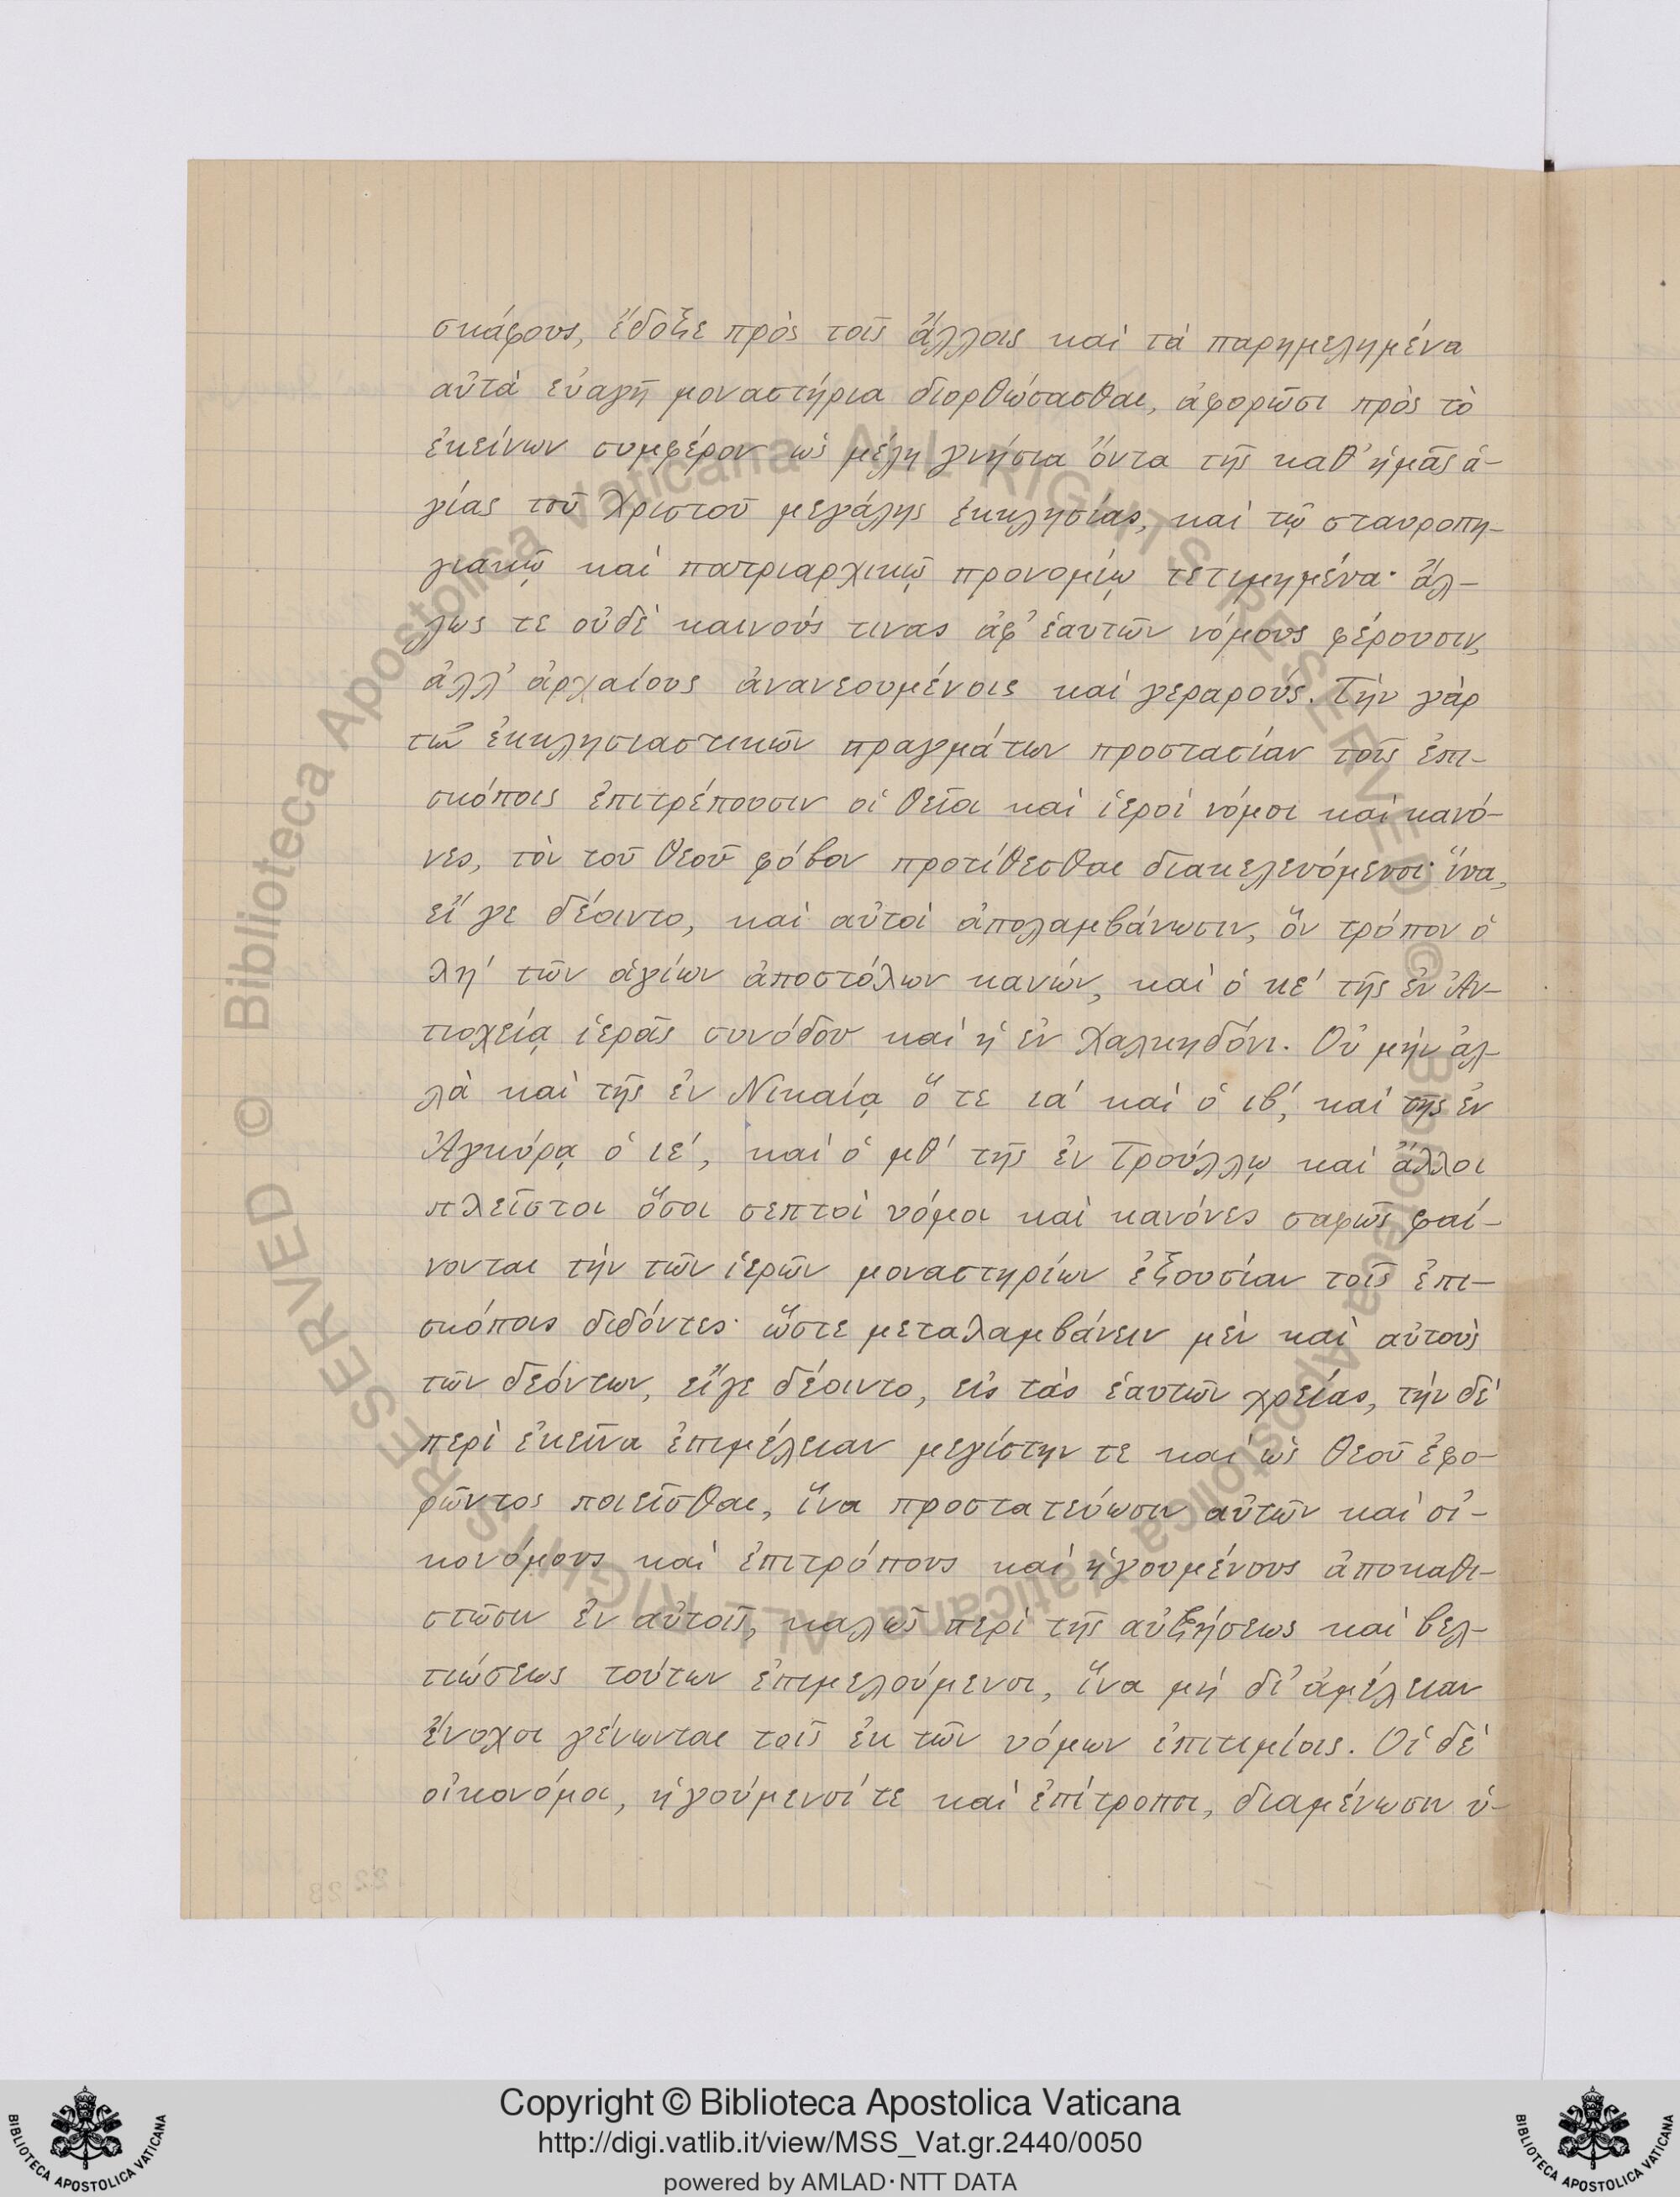 σκάφους, ἔδοξε πρὸς τοῖς ἄλλοις καὶ τὰ παρημελημένα
αὐτὰ εὐαγῆ μοναστήρια διορθώσασθαι, ἀφορῶσι πρὸς τὸ
ἐκείνων συμφέρον ὡς μέλη γνήσια ὄντα τῆς καθ᾽ ἡμᾶς ἁ-
γίας τοῦ Χριστοῦ μεγάλης ἐκκλησίας, καὶ τῷ σταυροπη-
γιακῷ καὶ πατριαρχικῷ προνομίῳ τετιμημένα· ἄλ-
λως τε οὐδὲ καινούς τινας ἀφ᾽ ἑαυτῶν νόμους φέρουσιν,
ἀλλ᾽ ἀρχαίους ἀνανεουμένοις καὶ γεραρούς. Τὴν γὰρ
τῶν ἐκκλησιαστικῶν πραγμάτων προστασίαν τοῖς ἐπι-
σκόποις ἐπιτρέπουσιν οἱ θεῖοι καὶ ἱεροὶ νόμοι καὶ κανό-
νες, τὸν τοῦ θεοῦ φόβον προτίθεσθαι διακελευόμενοι· ἵνα,
εἴ γε δέοιντο, καὶ αὐτοὶ ἀπολαμβάνωσιν, ὃν τρόπον ὁ
λη´ τῶν ἁγίων ἀποστόλων κανών, καὶ ὁ κε´ τῆς ἐν Ἀν-
τιοχείᾳ ἱερᾶς συνόδου καὶ ἡ ἐν Χαλκηδόνι. Οὐ μὴν ἀλ-
λὰ καὶ τῆς ἐν Νικαίᾳ ὅ τε ια´ καὶ ὁ ιβ´, καὶ τῆς ἐν
Ἀγκύρᾳ ὁ ιε´, καὶ ὁ μθ´ τῆς ἐν Τρούλλῳ καὶ ἄλλοι
πλεῖστοι ὅσοι σεπτοὶ νόμοι καὶ κανόνες σαφῶς φαί-
νονται τὴν τῶν ἱερῶν μοναστηρίων ἐξουσίαν τοῖς ἐπι-
σκόποις διδόντες· ὥστε μεταλαμβάνειν μὲν καὶ αὐτοὺς
τῶν δεόντων, εἴγε δέοιντο, εἰς τὰς ἑαυτῶν χρείας, τὴν δὲ
περὶ ἐκεῖνα ἐπιμέλειαν μεγίστην τε καὶ ὡς θεοῦ ἐφο-
ρῶντος ποιεῖσθαι, ἵνα προστατεύωσιν αὐτῶν καὶ οἰ-
κονόμους καὶ ἐπιτρόπους καὶ ἡγουμένους ἀποκαθι-
στῶσιν ἐν αὐτοῖς, καλῶς περὶ τῆς αὐξήσεως καὶ βελ-
τιώσεως τούτων ἐπιμελούμενοι, ἵνα μὴ δι᾽ ἀμέλειαν
ἔνοχοι γένωνται τοῖς ἐκ τῶν νόμων ἐπιτιμίοις. Οἱ δὲ
οἰκονόμοι, ἡγούμενοί τε καὶ ἐπίτροποι, διαμένωσιν ὑ-
© Biblioteca Apostolica Vaticana ALL RIGHTS RESERVED
© Biblioteca Apostolica Vaticana ALL RIGHTS RESERVED
Copyright © Biblioteca Apostolica Vaticana
http://digi.vatlib.it/view/MSS_Vat.gr.2440/0050
powered by AMLAD·NTT DATA
BIBLIOTECA APOSTOLICA VATICANA
BIBLIOTECA APOSTOLICA VATICANA